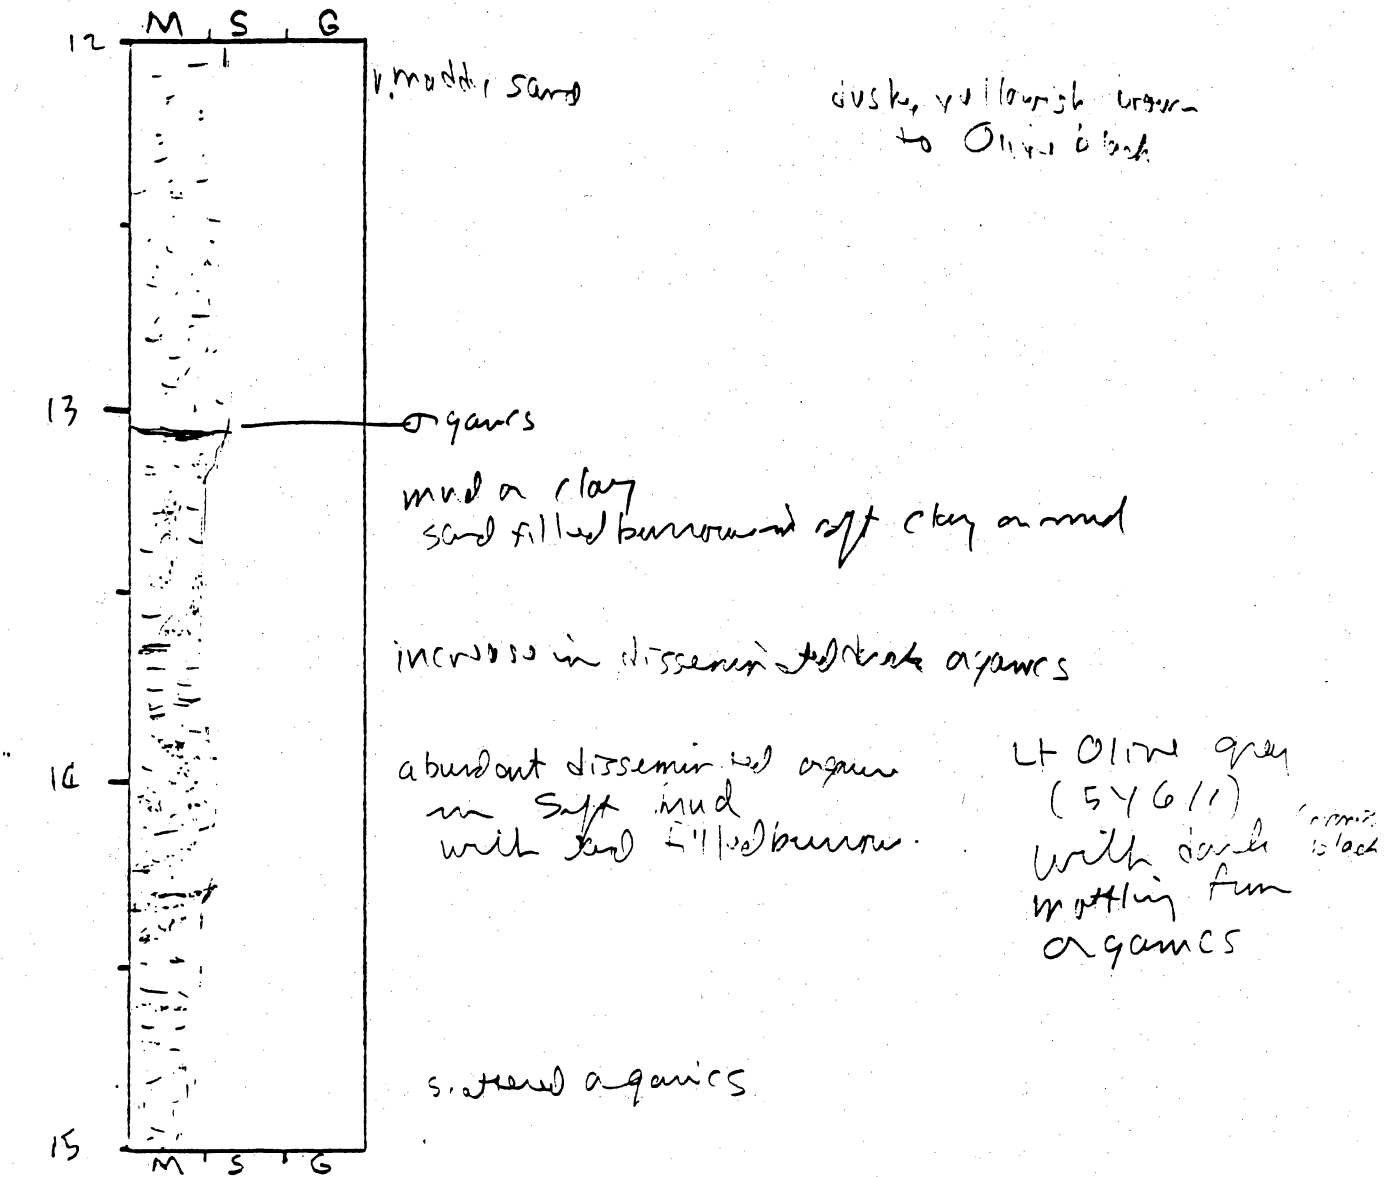 M S G
12
v. muddy sand
dusky yellowish brown
to Olive black
13
organics
mud or clay
sand filled burrows in soft clay or mud
increase in disseminated dark organics
abundant disseminated organics
in soft mud
with sand filled burrows.
14
Lt Olive gray
(5Y 6/1)
with dark
black
mottling from
organics
scattered organics
15
M S G